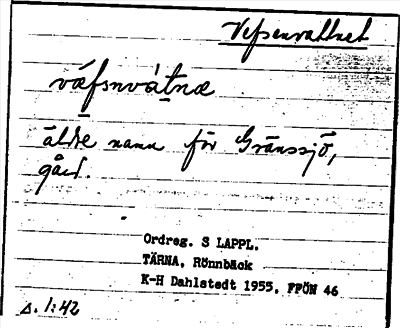 Vefsenvattnet
väfsnvátnæ
äldre namn för Gränssjö,
gård.
Ordreg. S LAPPL.
TÄRNA, Rönnbäck
K-H Dahlstedt 1955, FFÖN 46
s. 1:42